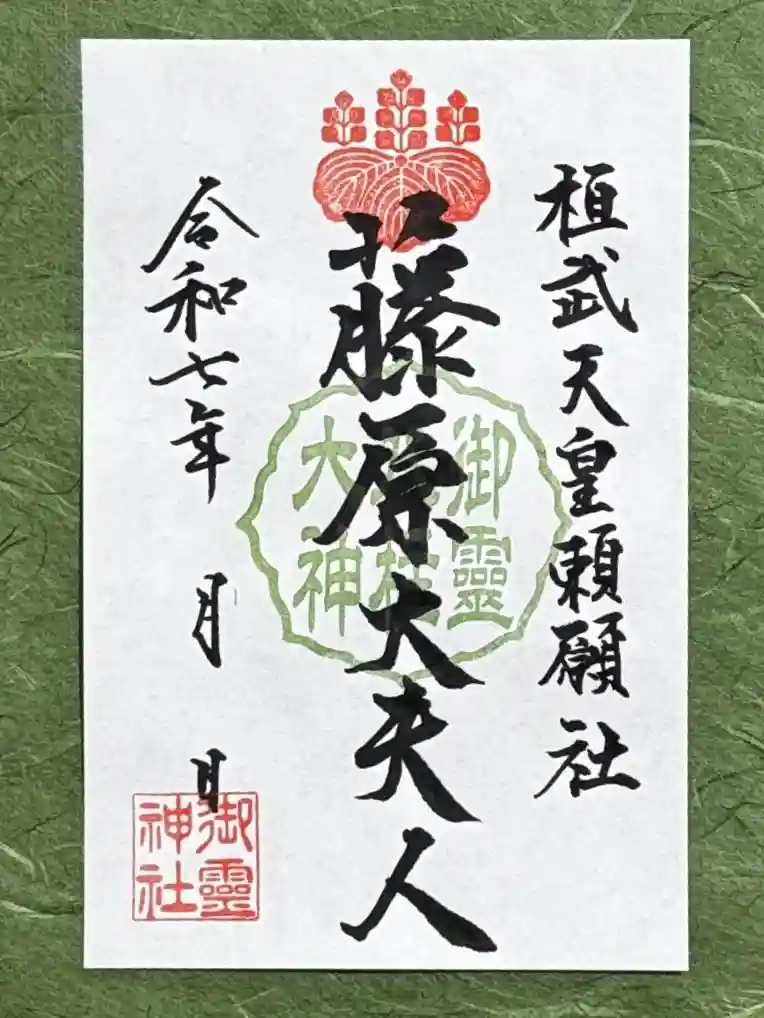 桓武天皇頼願社
藤原大夫人
御靈
大神
令和七年 月 日
御靈
神社